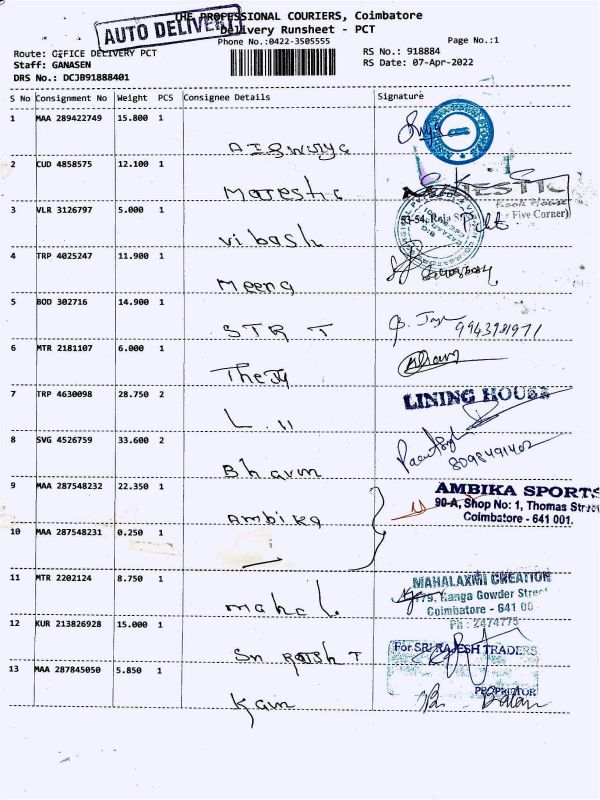 THE PROFESSIONAL COURIERS, Coimbatore
AUTO DELIVERY
Delivery Runsheet - PCT
Phone No.:0422-3505555
Page No.:1
Route: OFFICE DELIVERY PCT
RS No.: 918884
Staff: GANASEN
RS Date: 07-Apr-2022
DRS No.: DCJB91888401
S No Consignment No Weight PCS Consignee Details Signature
1 MAA 289422749 15.800 1
2 CUD 4858575 12.100 1
Majestic
3 VLR 3126797 5.000 1
Vibash
4 TRP 4025247 11.900 1
Meena
5 BOD 302716 14.900 1
STR T 9943981971
6 MTR 2181107 6.000 1
7 TRP 4630098 28.750 2
LINING HOUSE
L. II
8 SVG 4526759 33.600 2
8098491402
Bhavm
9 MAA 287548232 22.350 1
AMBIKA SPORTS
90-A, Shop No: 1, Thomas Street
Coimbatore - 641 001.
Ambika
10 MAA 287548231 0.250 1
11 MTR 2202124 8.750 1
MAHALAXMI CREATION
179, Ranga Gowder Street
Coimbatore - 641 00
Ph : 2474775
maha l.
12 KUR 213826928 15.000 1
For SRI RAJESH TRADERS
Sri Rajsh T
13 MAA 287845050 5.850 1
PROPRIETOR